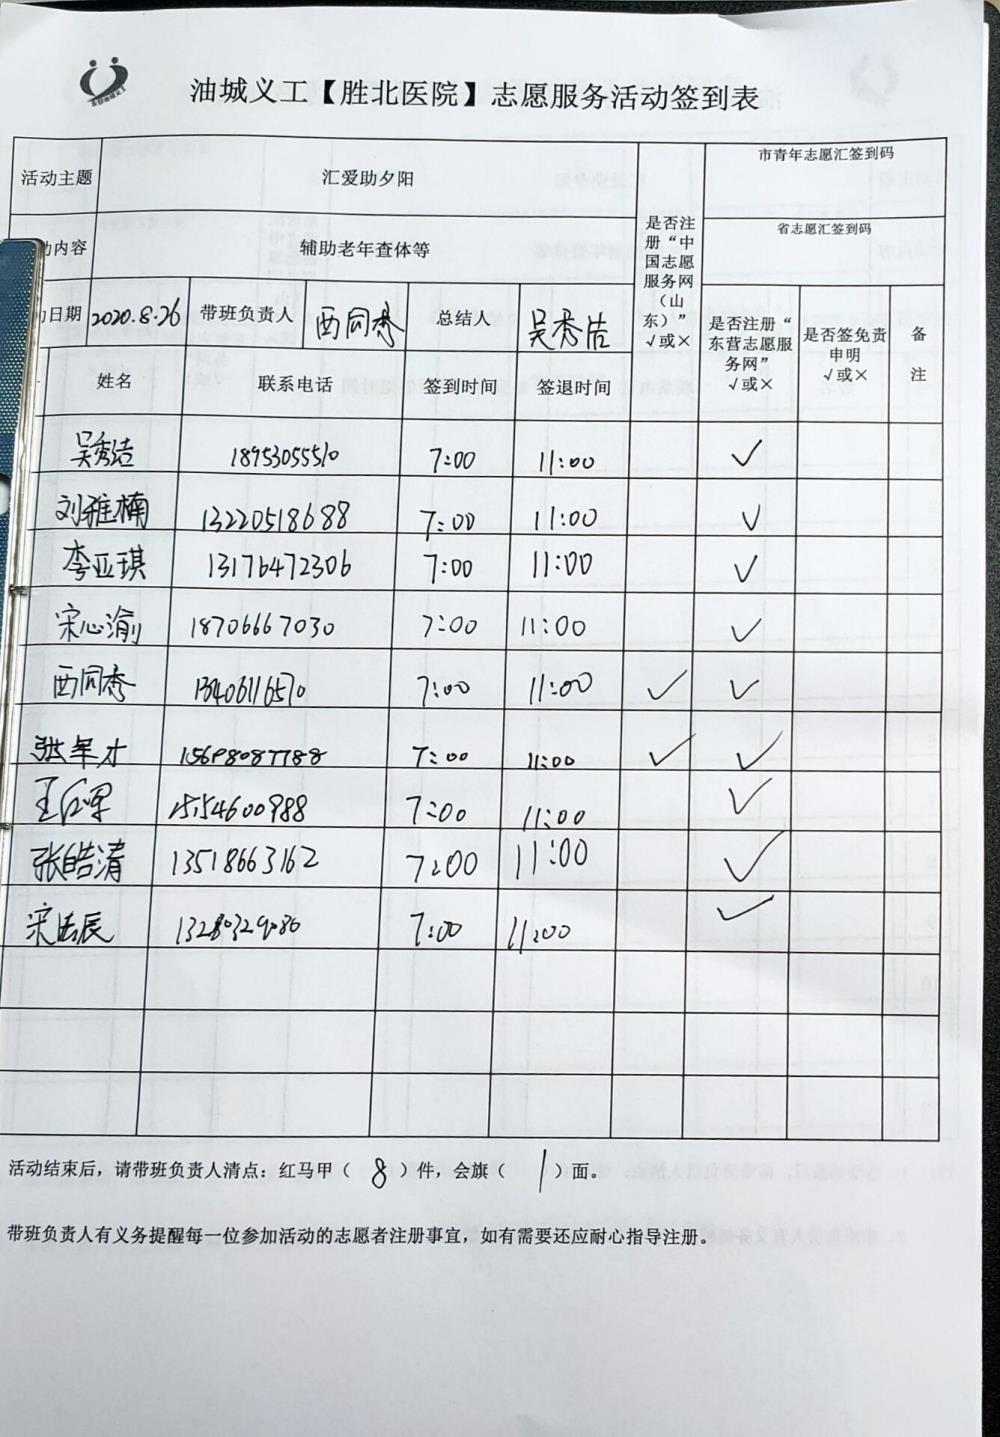 油城义工【胜北医院】志愿服务活动签到表
活动主题 汇爱助夕阳 市青年志愿汇签到码
动内容 辅助老年查体等 省志愿汇签到码
日期 2020.8.26 带班负责人 西同秀 总结人 吴秀洁
是否注册“中国志愿服务网（山东）”√或×
是否注册“东营志愿服务网”√或×
是否签免责申明√或×
备注
姓名 联系电话 签到时间 签退时间
吴秀洁 18953055510 7:00 11:00 √
刘雅楠 13220518688 7:00 11:00 √
李亚琪 13176472306 7:00 11:00 √
宋心渝 18706667030 7:00 11:00 √
西同秀 13406116570 7:00 11:00 √ √
张军才 15698087788 7:00 11:00 √ √
王 15154600988 7:00 11:00 √
张皓清 13518663162 7:00 11:00 √
宋法辰 13280329080 7:00 11:00 √
活动结束后，请带班负责人清点：红马甲（8）件，会旗（1）面。
带班负责人有义务提醒每一位参加活动的志愿者注册事宜，如有需要还应耐心指导注册。